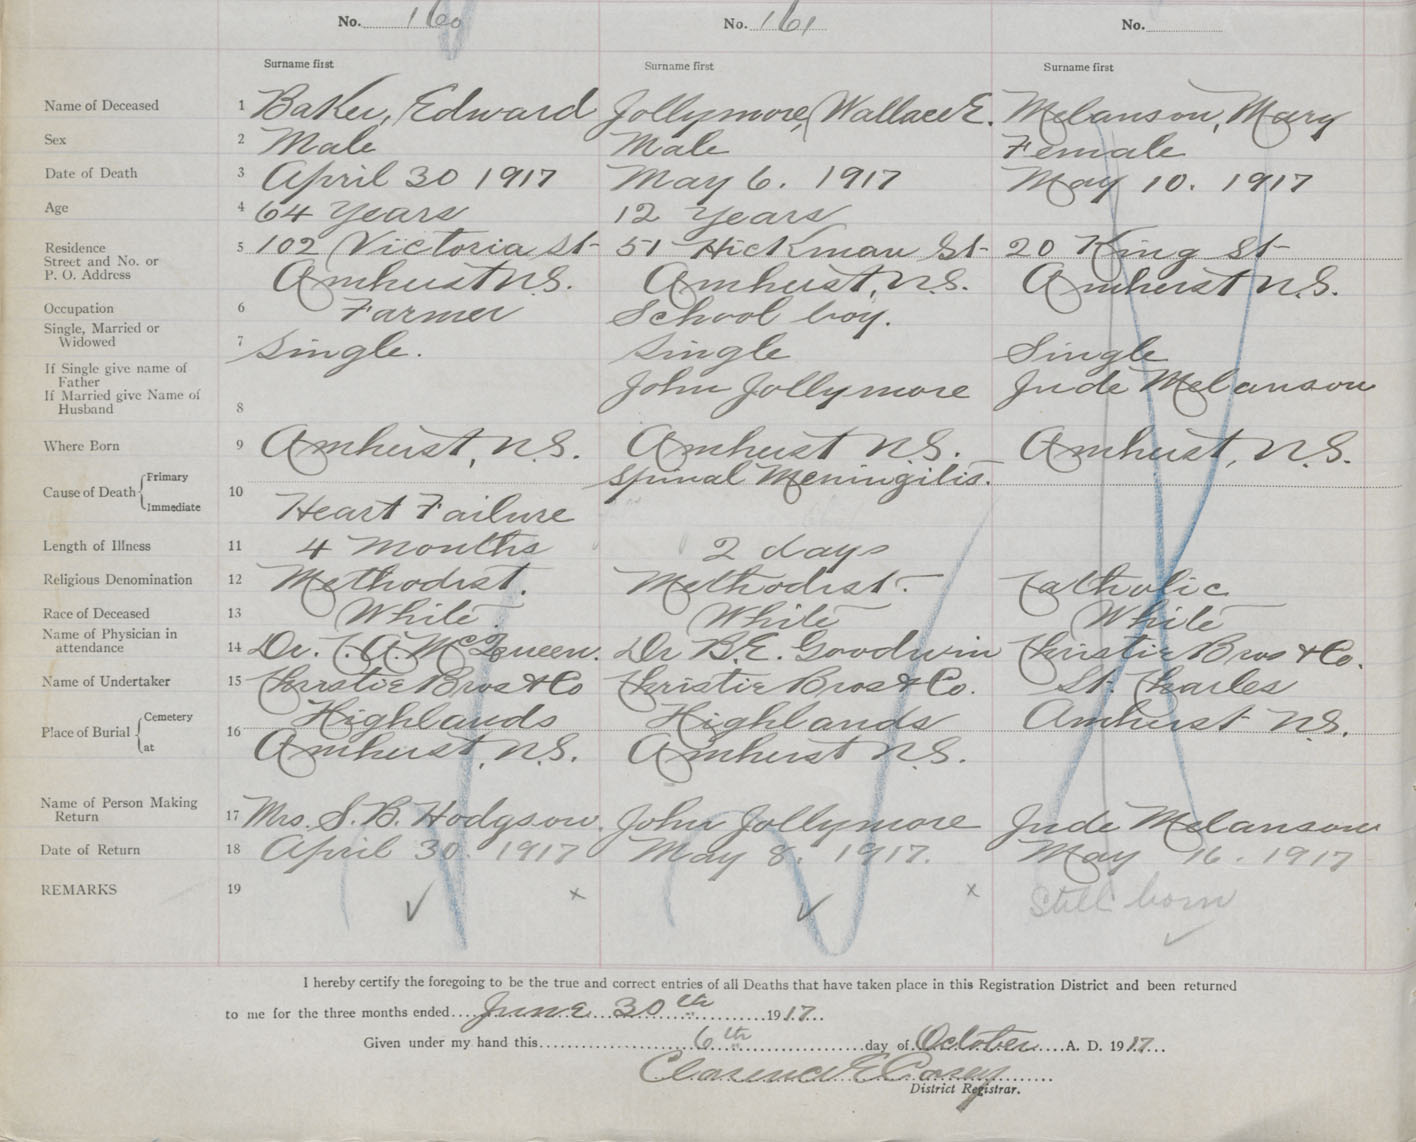 No. 160 No. 161 No.
Surname first Surname first Surname first
Name of Deceased 1 Baker, Edward Jollymore, Wallace E. Melanson, Mary
Sex 2 Male Male Female
Date of Death 3 April 30 1917 May 6. 1917 May 10. 1917
Age 4 64 Years 12 Years
Residence 5 102 Victoria St 51 Hickman St 20 King St
Street and No. or
P. O. Address Amherst N.S. Amherst, N.S. Amherst N.S.
Occupation 6 Farmer School boy.
Single, Married or
Widowed 7 Single. Single Single
If Single give name of
Father John Jollymore Jude Melanson
If Married give Name of
Husband 8
Where Born 9 Amherst, N.S. Amherst N.S. Amherst, N.S.
Primary Spinal Meningitis.
Cause of Death 10
Immediate Heart Failure
Length of Illness 11 4 Months 2 days
Religious Denomination 12 Methodist. Methodist. Catholic
Race of Deceased 13 White White White
Name of Physician in
attendance 14 Dr. A. McQueen. Dr B.E. Goodwin Christie Bros & Co.
Name of Undertaker 15 Christie Bros & Co Christie Bros & Co. St. Charles
Cemetery Highlands Highlands Amherst N.S.
Place of Burial 16
at Amherst, N.S. Amherst N.S.
Name of Person Making
Return 17 Mrs. S. B. Hodgson. John Jollymore Jude Melanson
Date of Return 18 April 30. 1917 May 8. 1917. May 16. 1917
REMARKS 19 ✓ x ✓ x Still born
✓
I hereby certify the foregoing to be the true and correct entries of all Deaths that have taken place in this Registration District and been returned
to me for the three months ended....June 30th....1917...
Given under my hand this....6th....day of October....A. D. 1917...
Clarence E Casey
District Registrar.